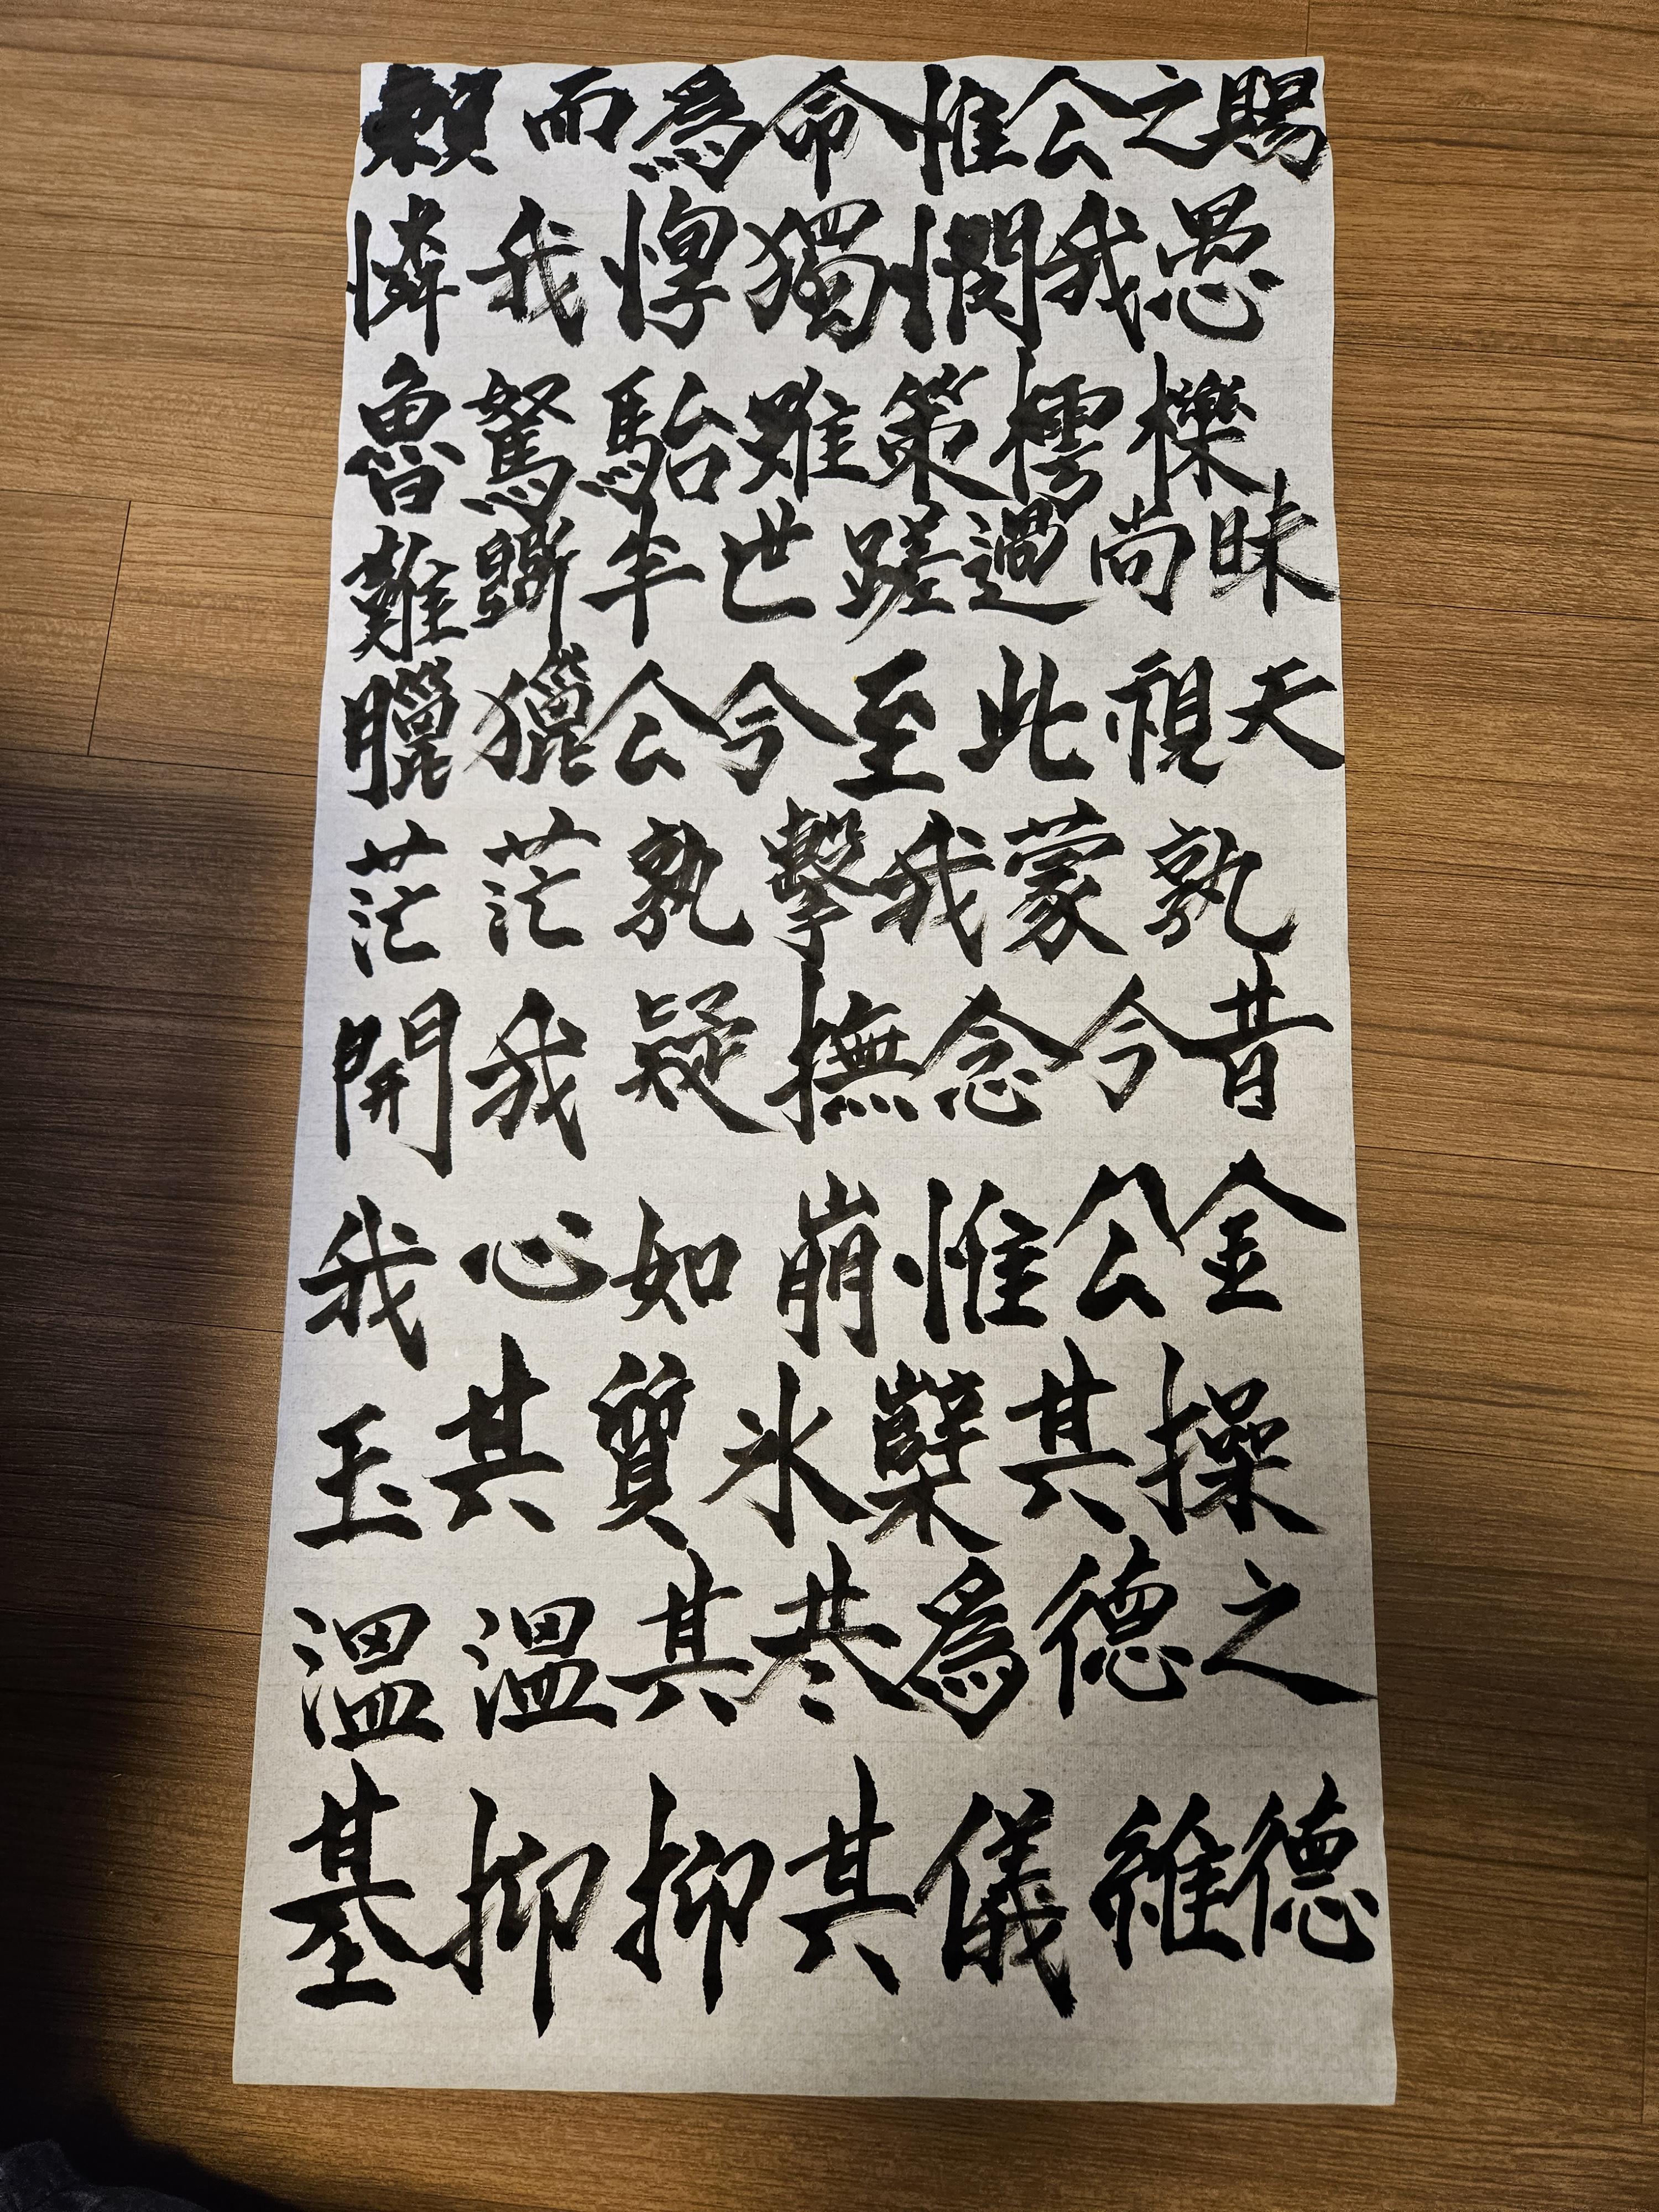 賴而爲命惟公之賜
憐我惸獨憫我愚
魯駑駘雖策樗櫟
難斲半世蹉過尚昧
臘獵公今至此視天
茫茫孰擊我蒙孰
開我疑撫念今昔
我心如崩惟公金
玉其質氷蘗其操
溫溫其恭爲德之
基抑抑其儀維德